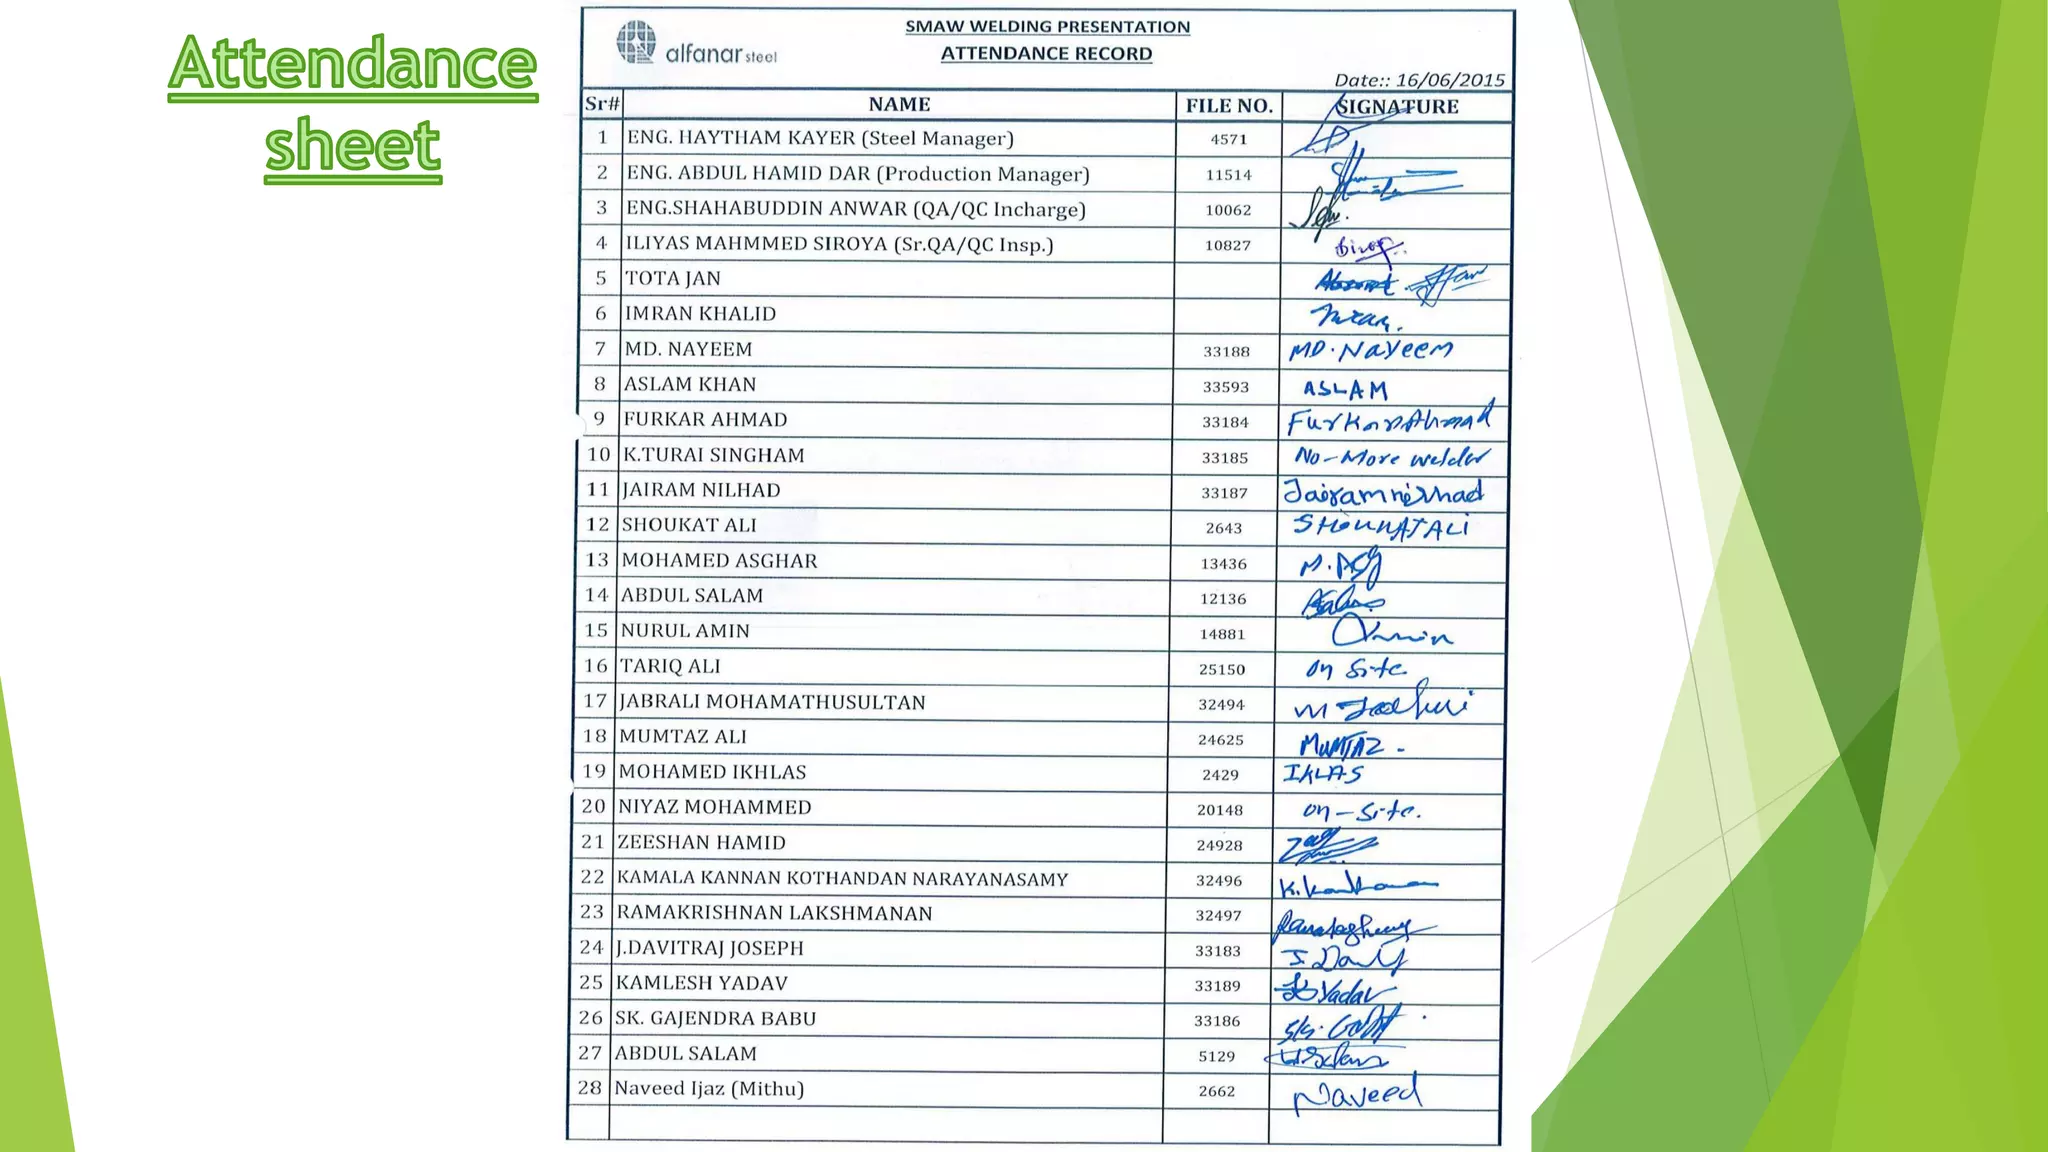 Attendance
sheet
alfanar steel
SMAW WELDING PRESENTATION
ATTENDANCE RECORD
Date:: 16/06/2015
Sr# NAME FILE NO. SIGNATURE
1 ENG. HAYTHAM KAYER (Steel Manager) 4571
2 ENG. ABDUL HAMID DAR (Production Manager) 11514
3 ENG.SHAHABUDDIN ANWAR (QA/QC Incharge) 10062
4 ILIYAS MAHMMED SIROYA (Sr.QA/QC Insp.) 10827
5 TOTA JAN
6 IMRAN KHALID Imran.
7 MD. NAYEEM 33188 MD. Nayeem
8 ASLAM KHAN 33593 ASLAM
9 FURKAR AHMAD 33184 Furkan Ahmad
10 K.TURAI SINGHAM 33185 No-More welder
11 JAIRAM NILHAD 33187 Jairam nishad
12 SHOUKAT ALI 2643 SHOUKAT ALI
13 MOHAMED ASGHAR 13436 M. ASg
14 ABDUL SALAM 12136
15 NURUL AMIN 14881 Amin
16 TARIQ ALI 25150 on site
17 JABRALI MOHAMATHUSULTAN 32494
18 MUMTAZ ALI 24625 MUMTAZ -
19 MOHAMED IKHLAS 2429 IKLAS
20 NIYAZ MOHAMMED 20148 on-site.
21 ZEESHAN HAMID 24928
22 KAMALA KANNAN KOTHANDAN NARAYANASAMY 32496
23 RAMAKRISHNAN LAKSHMANAN 32497
24 J.DAVITRAJ JOSEPH 33183
25 KAMLESH YADAV 33189 Yadav
26 SK. GAJENDRA BABU 33186
27 ABDUL SALAM 5129
28 Naveed Ijaz (Mithu) 2662 Naveed